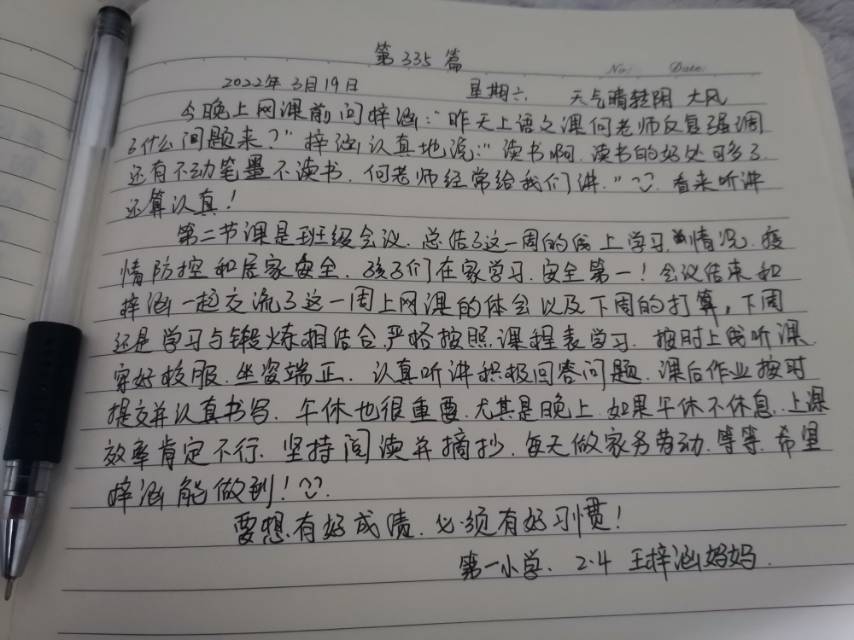 第335篇
No: Date:
2022年3月19日 星期六 天气晴转阴 大风
今晚上网课前问梓涵:"昨天上语文课何老师反复强调
了什么问题来?"梓涵认真地说:"读书啊.读书的好处可多了.
还有不动笔墨不读书.何老师经常给我们讲."看来听讲
还算认真!
第二节课是班级会议.总结了这一周的线上学习情况.疫
情防控和居家安全.孩子们在家学习.安全第一!会议结束和
梓涵一起交流了这一周上网课的体会以及下周的打算,下周
还是学习与锻炼相结合,严格按照课程表学习.按时上线听课
穿好校服.坐姿端正.认真听讲积极回答问题.课后作业按时
提交并认真书写.午休也很重要.尤其是晚上.如果午休不休息.上课
效率肯定不行.坚持阅读并摘抄.每天做家务劳动.等等.希望
梓涵能做到!
要想有好成绩.必须有好习惯!
第一小学.2.4 王梓涵妈妈.